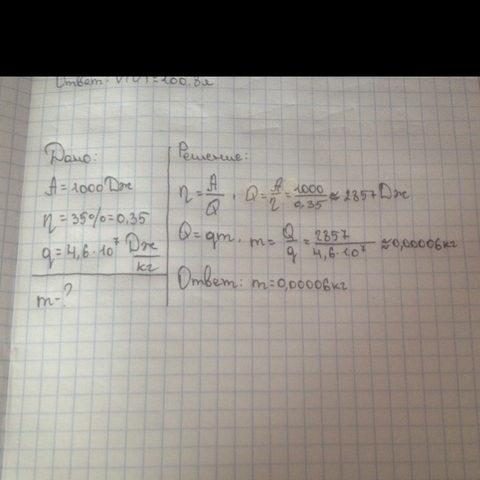 Ответ:
Дано:
A = 1000 Дж
η = 35% = 0,35
q = 4,6 · 10⁷ Дж/кг
m - ?
Решение:
η = A/Q . Q = A/η = 1000/0,35 ≈ 2857 Дж
Q = qm . m = Q/q = 2857/4,6 · 10⁷ ≈ 0,00006 кг
Ответ: m = 0,00006 кг